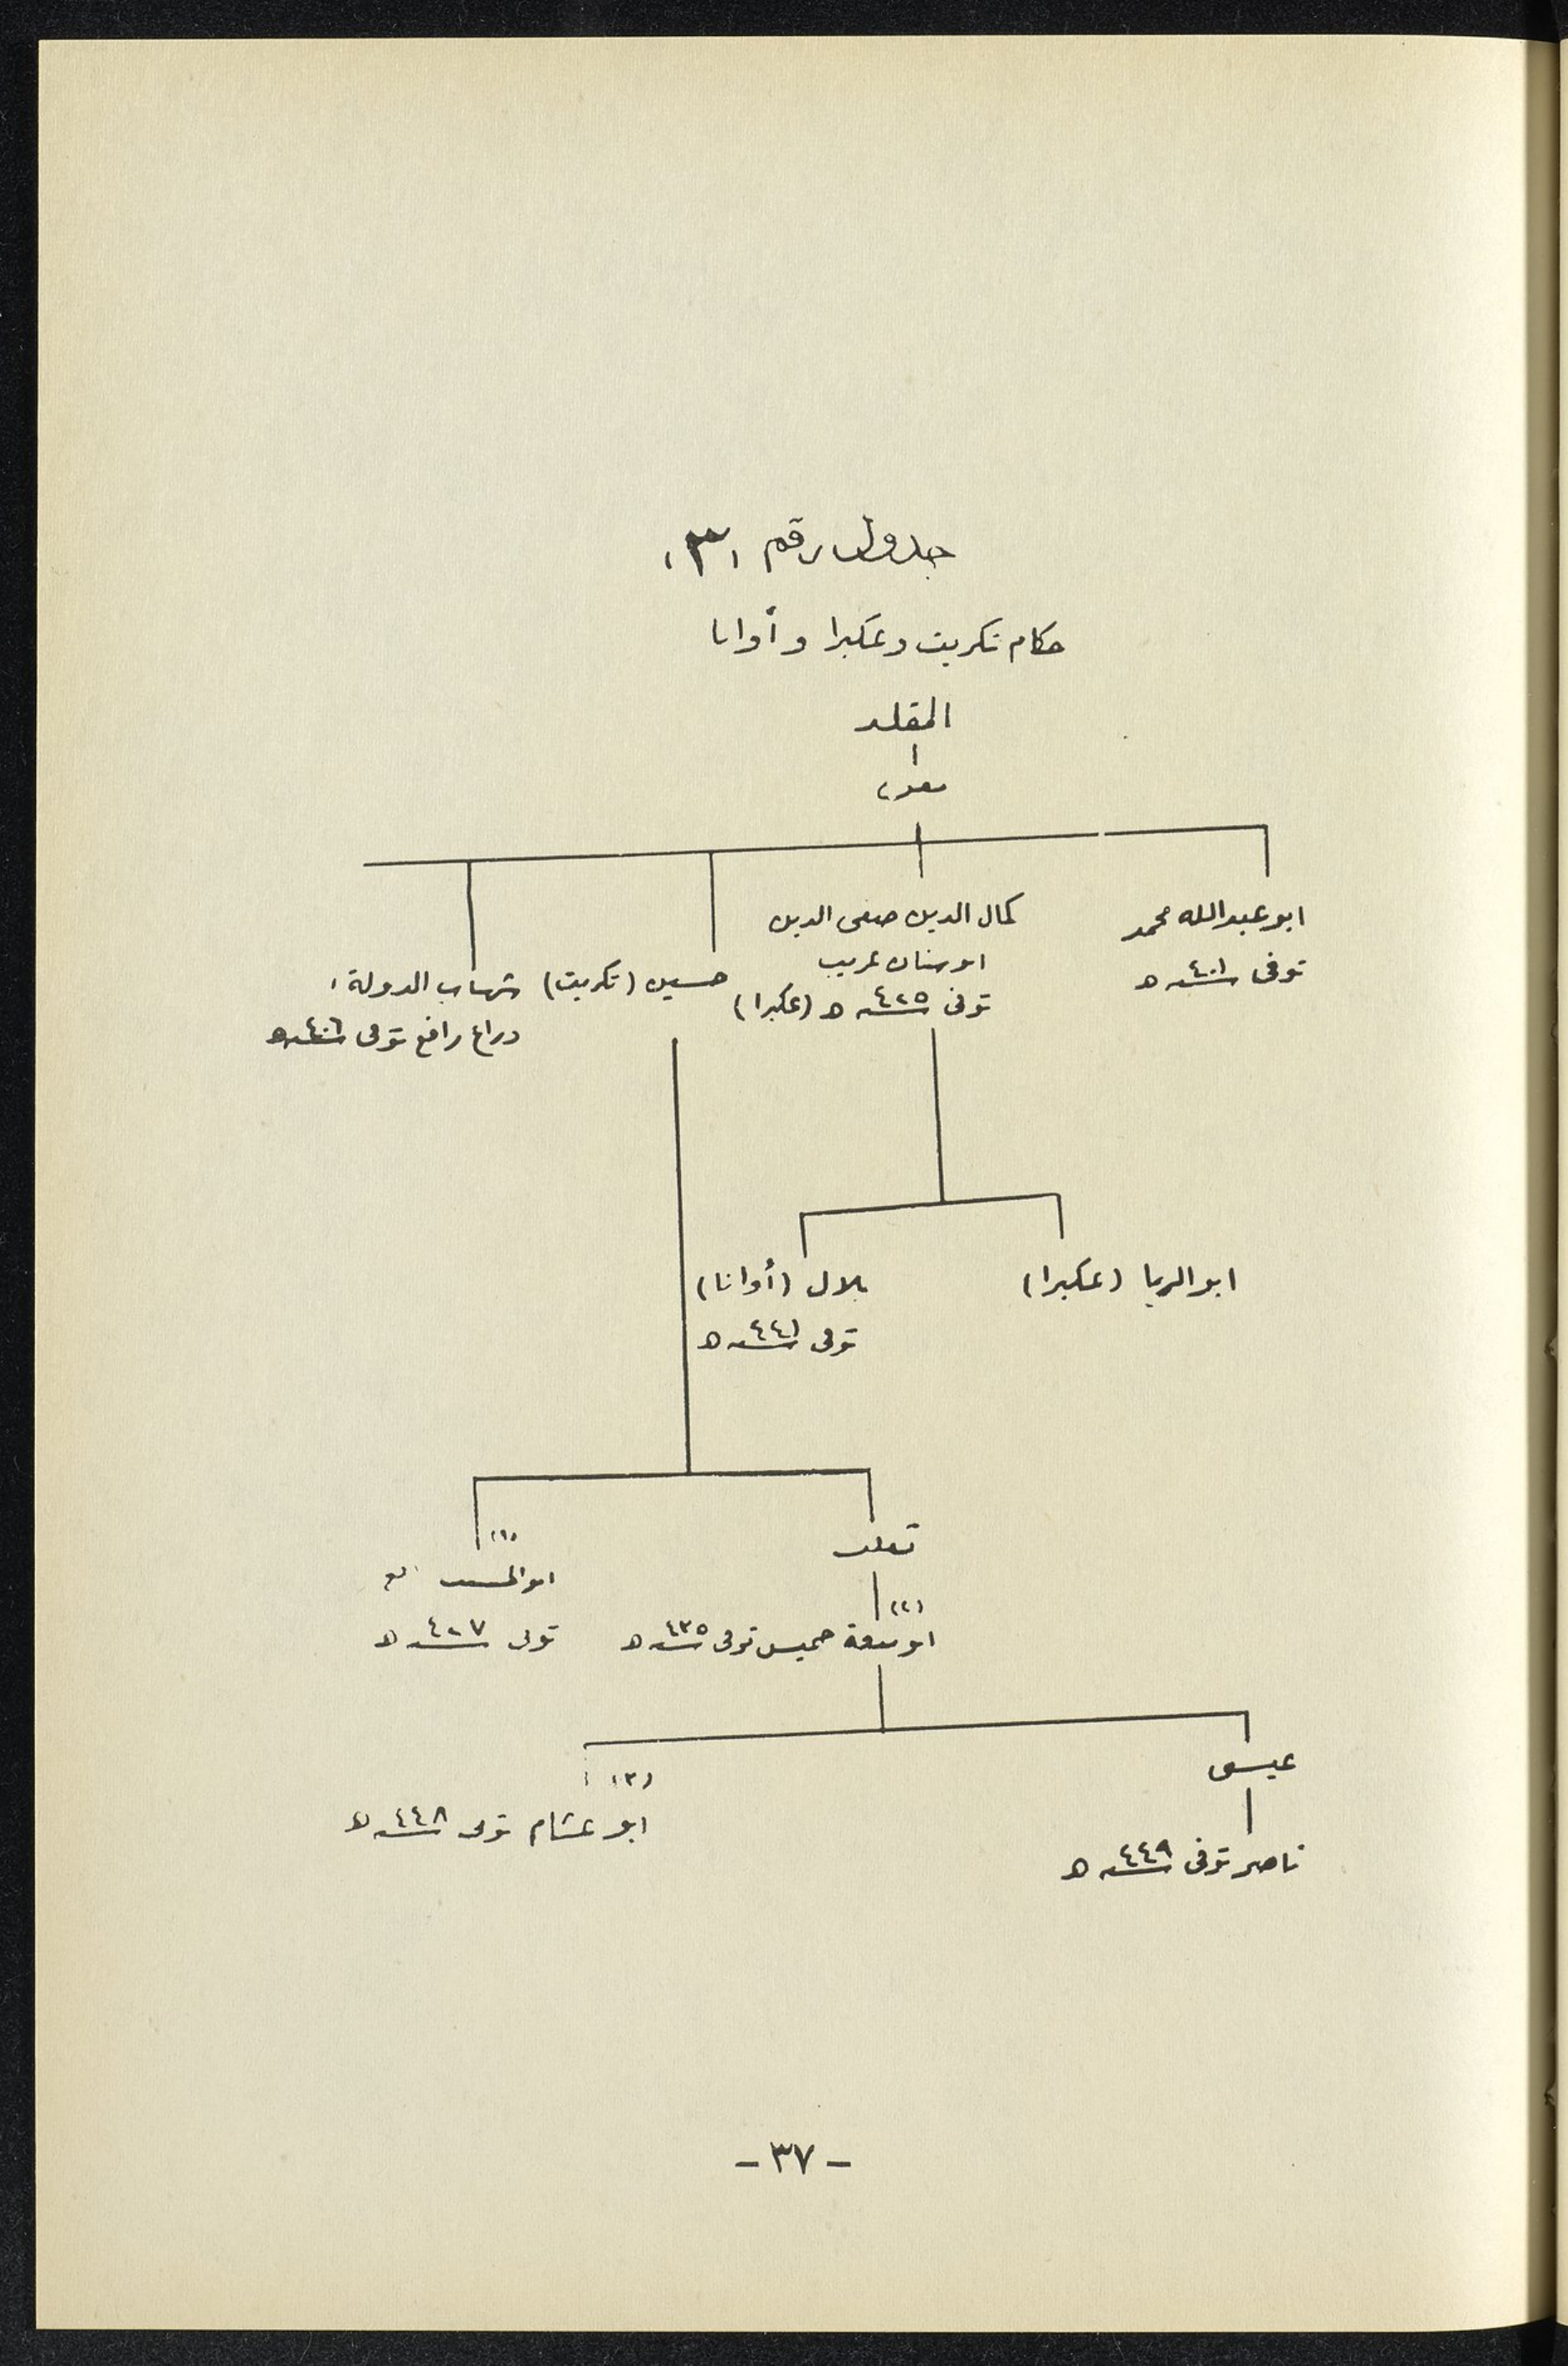 جدول رقم (٣)
حكام تكريت وعكبرا وأوانا
المقلد
معن
ابو عبدالله محمد
توفى سنة ٤٠١ ه
كمال الدين صفى الدين
ابو سنان غريب
توفى سنة ٤٢٥ ه (عكبرا)
حسين (تكريت)
شهاب الدولة
دراع رافع توفى سنة ٤٠٦ ه
ابو الريا (عكبرا)
بلال (أوانا)
توفى سنة ٤٤١ ه
ثعلب
(١)
ابو المسيب
توفى سنة ٤٢٧ ه
(٢)
ابو منعة خميس توفى سنة ٤٣٥ ه
عيسى
ناصر توفى سنة ٤٤٩ ه
(٣)
ابو غشام توفى سنة ٤٤٨ ه
- ٣٧ -